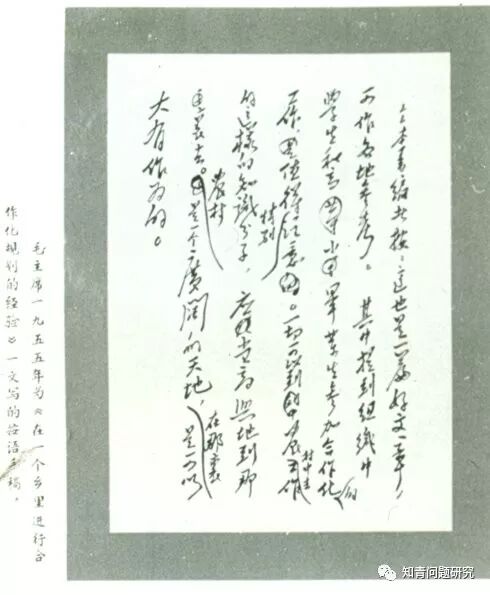 本書编者按：這也是一篇好文章，
可作各地参考。其中提到组織中
學生和高小畢業生参加合作化的
工作，值得特别注意。一切可以到農村中去工作
的這樣的知識分子，應当高兴地到那
裏去。農村是一个廣闊的天地，在那裏是可以
大有作为的。
毛主席一九五五年为《在一个乡里进行合
作化规划的经验》一文写的按语手稿。
知青问题研究